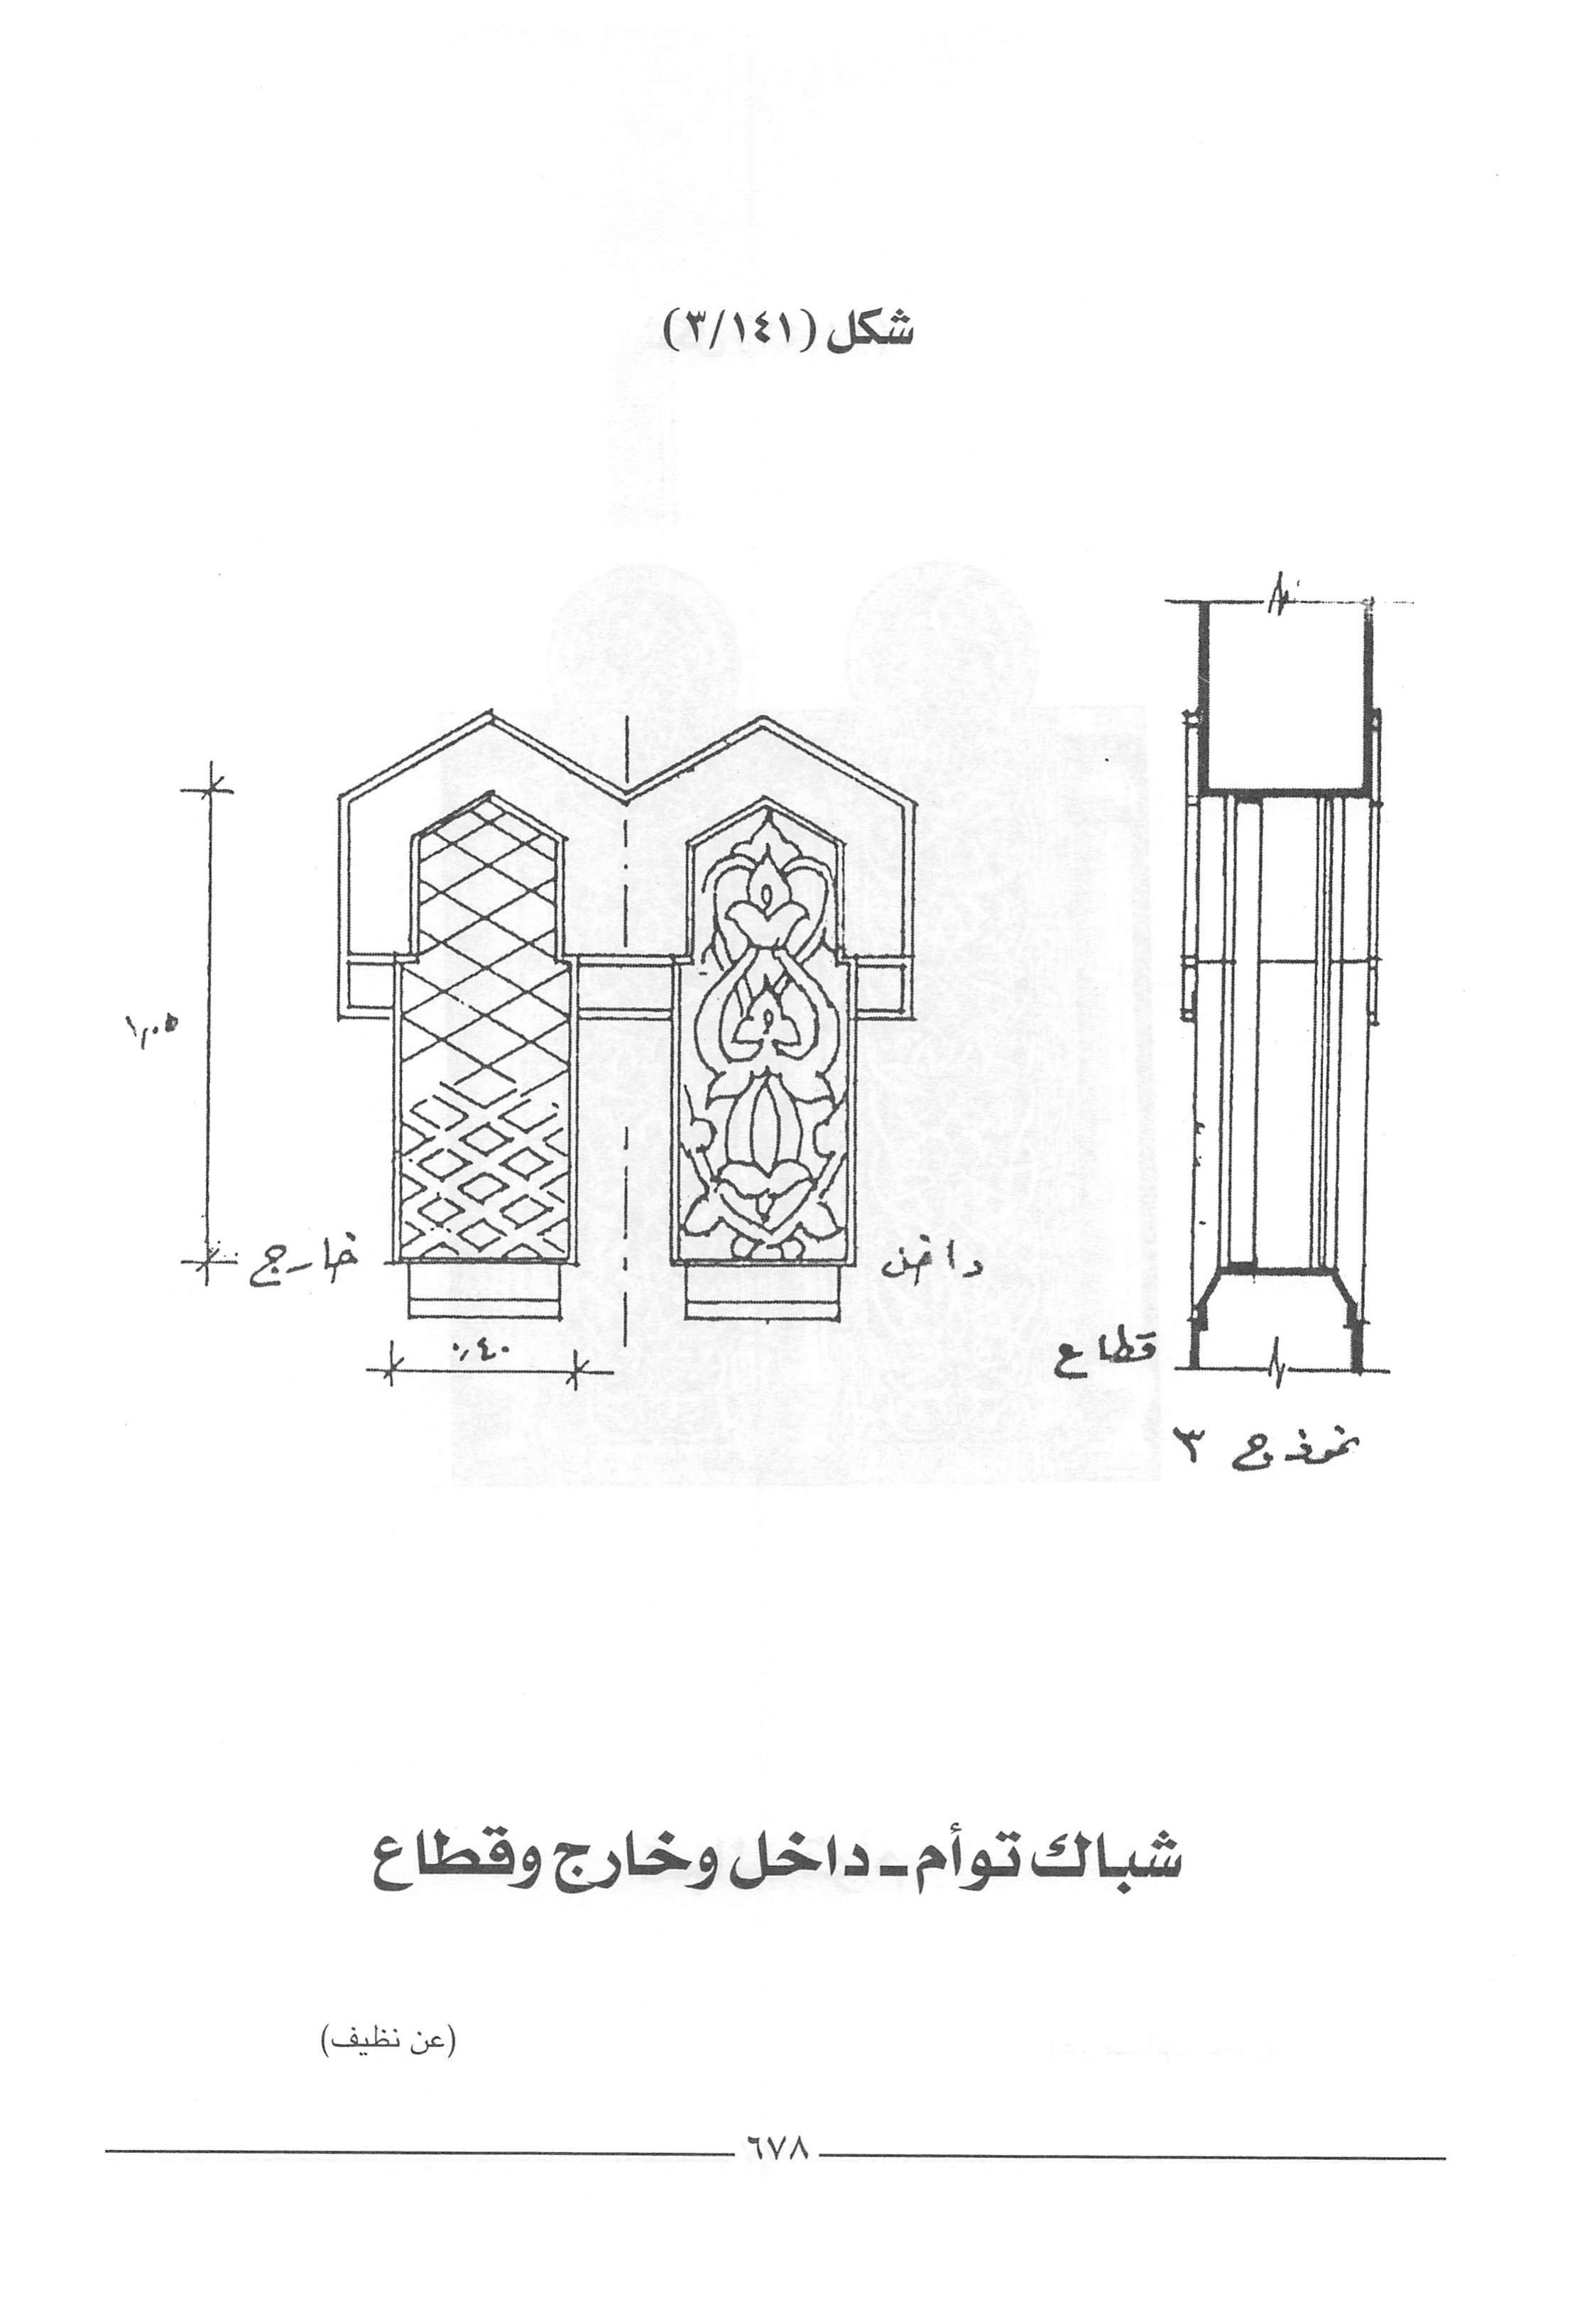 شكل (٣/١٤١)
١٫٠٥
خارج
داخل
٠٫٤٠
قطاع
نموذج ٣
شباك توأم - داخل وخارج وقطاع
(عن نظيف)
٦٧٨